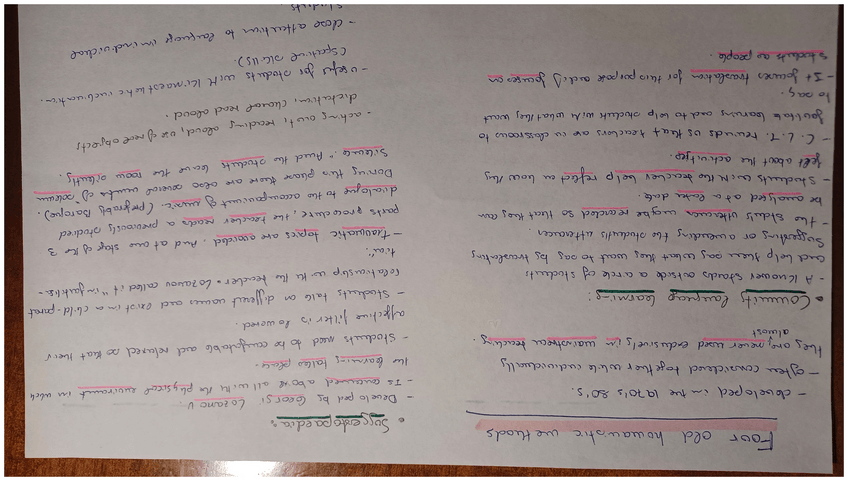 Four old humanistic methods
- developed in the 1970's 80's.
- often considered together while individually
they are never used exclusively in mainstream teaching.
almost
• Community language learning:
- A knower stands outside a circle of students
and help them say what they want to say by translating
Suggesting or amending the students utterances
- the students utterances may be recorded so that they can
be analysed at a later date.
- Students with teachers help reflect on how they
felt about the activities.
- C.L.T. reminds us that teachers are in classrooms to
facilitate learning and to help students with what they want
to say.
- It focuses translation for this purpose and it focuses on
students as people.
• Suggestopaedia:
- Developed by Georgi Lozanov
- Is concerned above all with the physical enviroment in which
the learning takes place.
- Students need to be comfortable and relaxed so that their
affective filter is lowered.
- Students take on different names and exist in a child-parent
relationship with the teacher "Lozanov called it "infantilisa-
tion".
- Traumatic topics are avoided. And at one stage of the 3
parts procedure, the teacher reads a previously studied
dialogue to the accompaniment of music (preferably Baroque).
During this phase there are also several minutes of "solemn
Silence". And the students leave the room silently.
- acting out, reading aloud, use of real objects
dictation, choral read aloud.
- useful for students with Kinaesthetic inclination.
(specific skills).
- close attention to language in individual
students